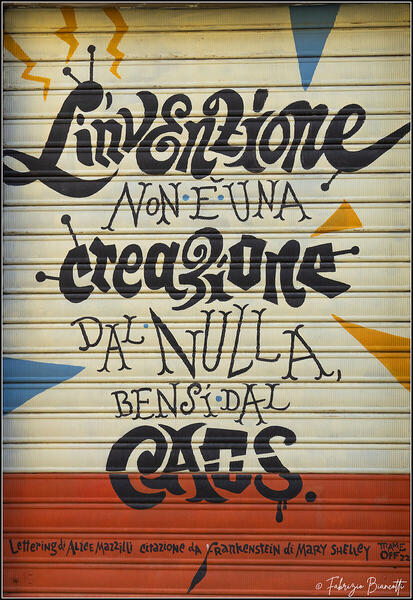 L'invenzione
NON È UNA
creazione
DAL NULLA,
BENSÍ DAL
CAOS.
Lettering di Alice Mazzilli citazione da Frankenstein di MARY SHELLEY
TRAME
OFF 22
© Fabrizio Biancotti